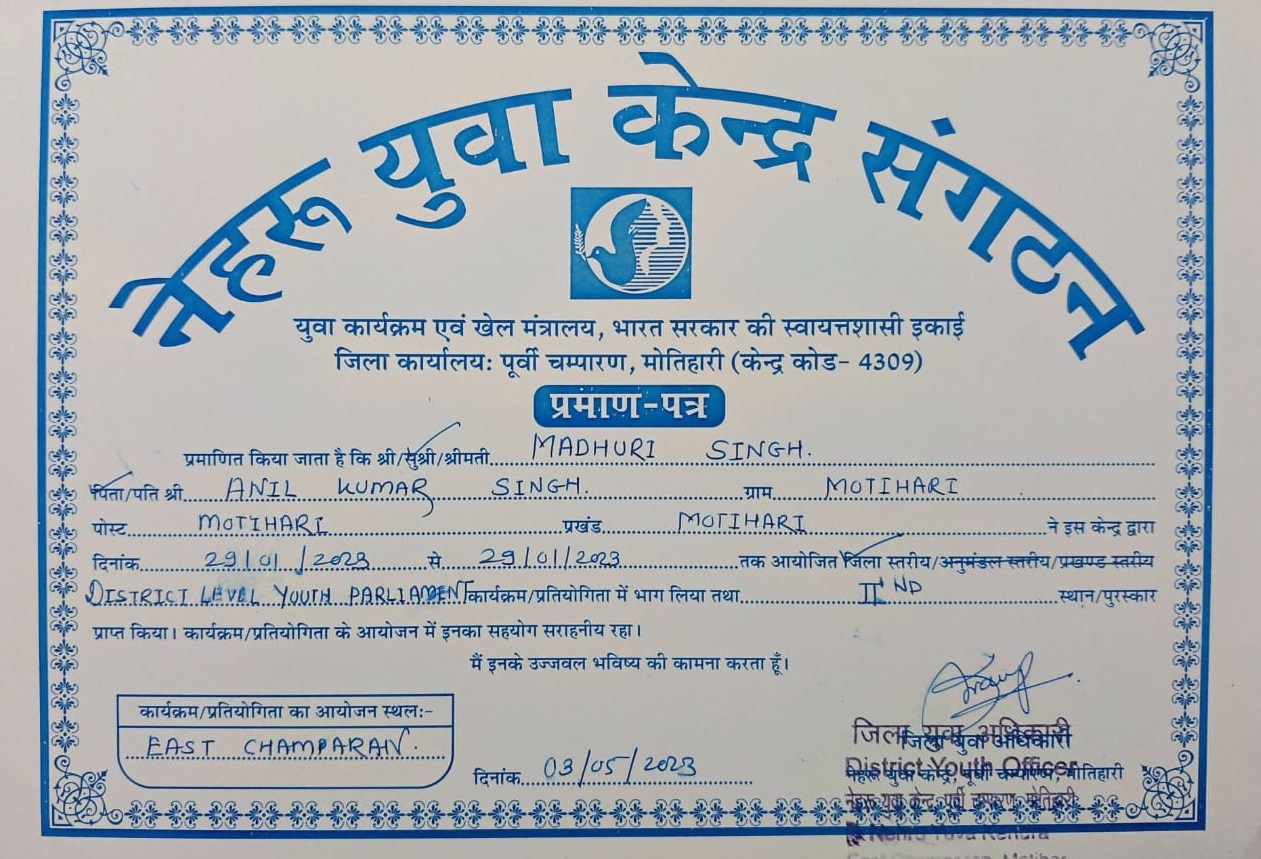 नेहरू युवा केन्द्र संगटन
युवा कार्यक्रम एवं खेल मंत्रालय, भारत सरकार की स्वायत्तशासी इकाई
जिला कार्यालय: पूर्वी चम्पारण, मोतिहारी (केन्द्र कोड- 4309)
प्रमाण-पत्र
प्रमाणित किया जाता है कि श्री/सुश्री/श्रीमती MADHURI SINGH.
पिता/पति श्री ANIL KUMAR SINGH. ग्राम MOTIHARI
पोस्ट MOTIHARI प्रखंड MOTIHARI ने इस केन्द्र द्वारा
दिनांक 29/01/2023 से 29/01/2023 तक आयोजित जिला स्तरीय/अनुमंडल स्तरीय/प्रखण्ड स्तरीय
DISTRICT LEVEL YOUTH PARLIAMENT कार्यक्रम/प्रतियोगिता में भाग लिया तथा II ND स्थान/पुरस्कार
प्राप्त किया। कार्यक्रम/प्रतियोगिता के आयोजन में इनका सहयोग सराहनीय रहा।
मैं इनके उज्जवल भविष्य की कामना करता हूँ।
कार्यक्रम/प्रतियोगिता का आयोजन स्थल:-
EAST CHAMPARAN.
दिनांक 03/05/2023
जिला युवा अधिकारी
जिला युवा अधिकारी
District Youth Officer
नेहरू युवा केन्द्र, पूर्वी चम्पारण, मोतिहारी
नेहरू युवा केन्द्र, पूर्वी चम्पारण, मोतिहारी
Nehru Yuva Kendra